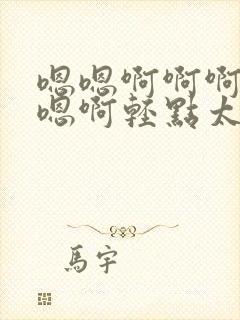 嗯嗯啊啊啊
嗯啊輕點太
馬宇